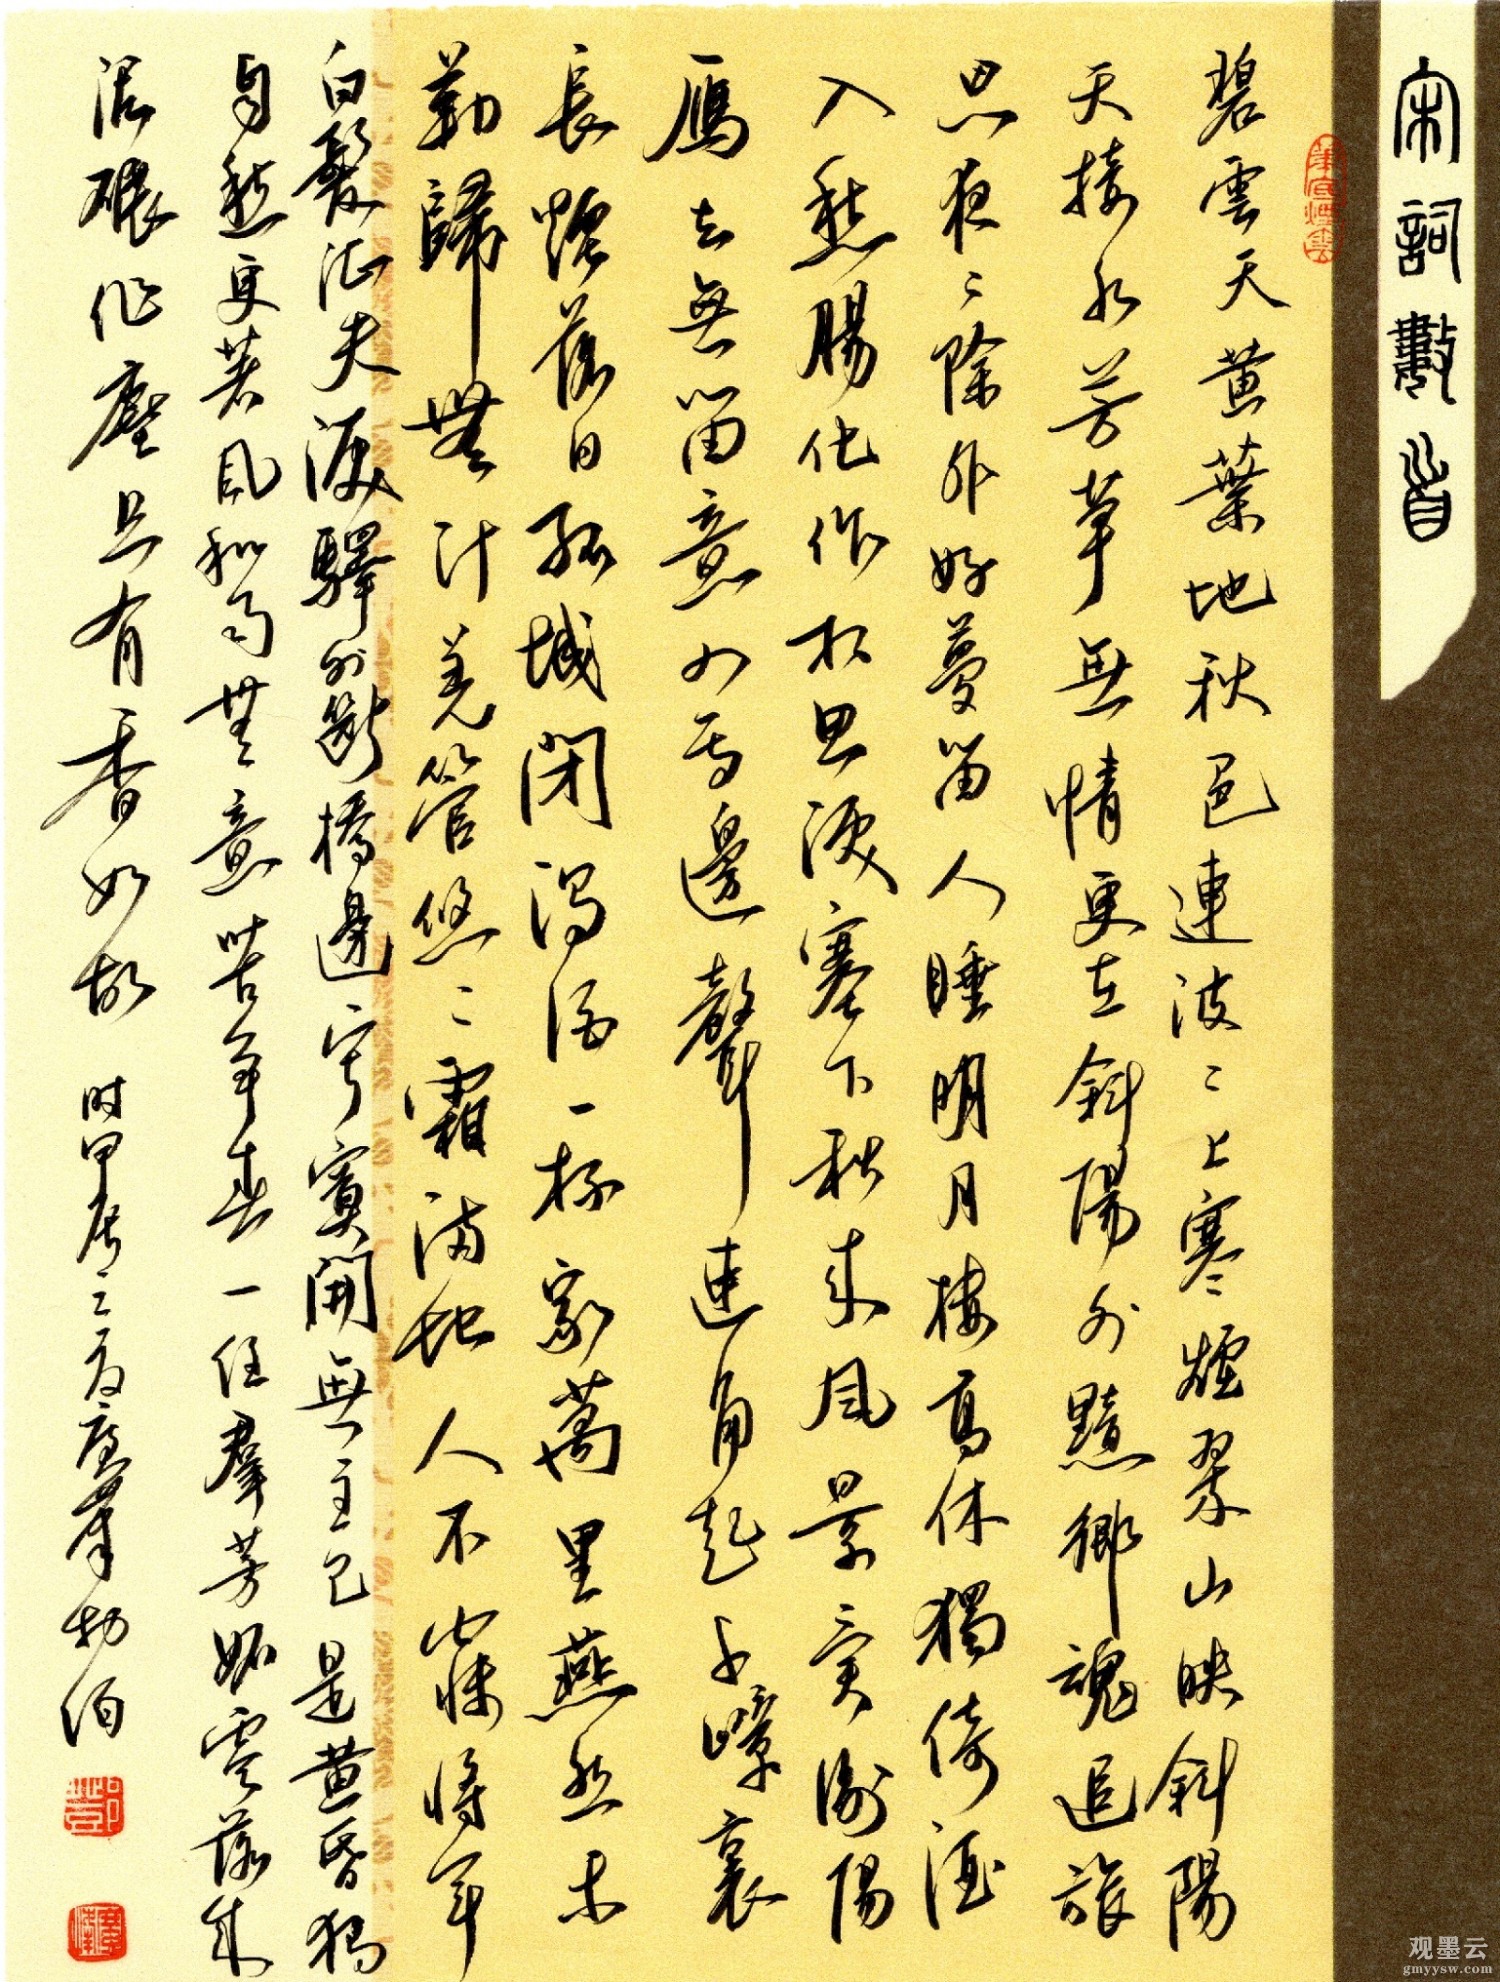 宋詞數首
筆底煙雲
碧雲天黄葉地秋色連波〻上寒煙翠山映斜陽
天接水芳草無情更在斜陽外黯鄉魂追旅
思夜〻除非好夢留人睡明月樓高休獨倚酒
入愁腸化作相思淚塞下秋來風景異衡陽
鴈去無留意四面邊聲連角起千嶂裏
長煙落日孤城閉濁酒一杯家萬里燕然未
勒歸無計羌管悠〻霜滿地人不寐將軍
白髮征夫淚驛外斷橋邊寂寞開無主已是黄昏獨
自愁更著風和雨無意苦爭春一任羣芳妒零落成
泥碾作塵只有香如故
时甲辰之夏
观墨云
gmyysw.com